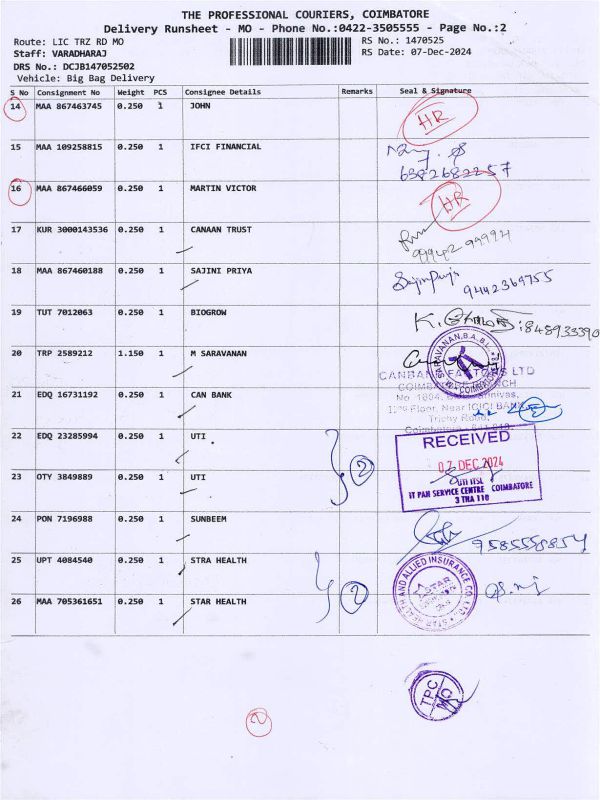 THE PROFESSIONAL COURIERS, COIMBATORE
Delivery Runsheet - MO - Phone No.:0422-3505555 - Page No.:2
Route: LIC TRZ RD MO RS No.: 1470525
Staff: VARADHARAJ RS Date: 07-Dec-2024
DRS No.: DCJB147052502
Vehicle: Big Bag Delivery
S No Consignment No Weight PCS Consignee Details Remarks Seal & Signature
14 MAA 867463745 0.250 1 JOHN HR
15 MAA 109258815 0.250 1 IFCI FINANCIAL
6382682257
16 MAA 867466059 0.250 1 MARTIN VICTOR HR
17 KUR 3000143536 0.250 1 CANAAN TRUST
99942-94994
18 MAA 867460188 0.250 1 SAJINI PRIYA 9442369755
19 TUT 7012063 0.250 1 BIOGROW :848933390
20 TRP 2589212 1.150 1 M SARAVANAN
SARAVANAN,B.A.,B.L.
CANBANK FACTORS LTD
21 EDQ 16731192 0.250 1 CAN BANK
Floor, Near ICICI BANK
Trichy Road,
22 EDQ 23285994 0.250 1 UTI 2
RECEIVED
07 DEC 2024
23 OTY 3849889 0.250 1 UTI
UTI ITSL
IT PAN SERVICE CENTRE COIMBATORE
3 THA 110
24 PON 7196988 0.250 1 SUNBEEM
9585558854
25 UPT 4084540 0.250 1 STRA HEALTH 2
STAR HEALTH AND ALLIED INSURANCE CO. LTD
26 MAA 705361651 0.250 1 STAR HEALTH
TPC
MO
2